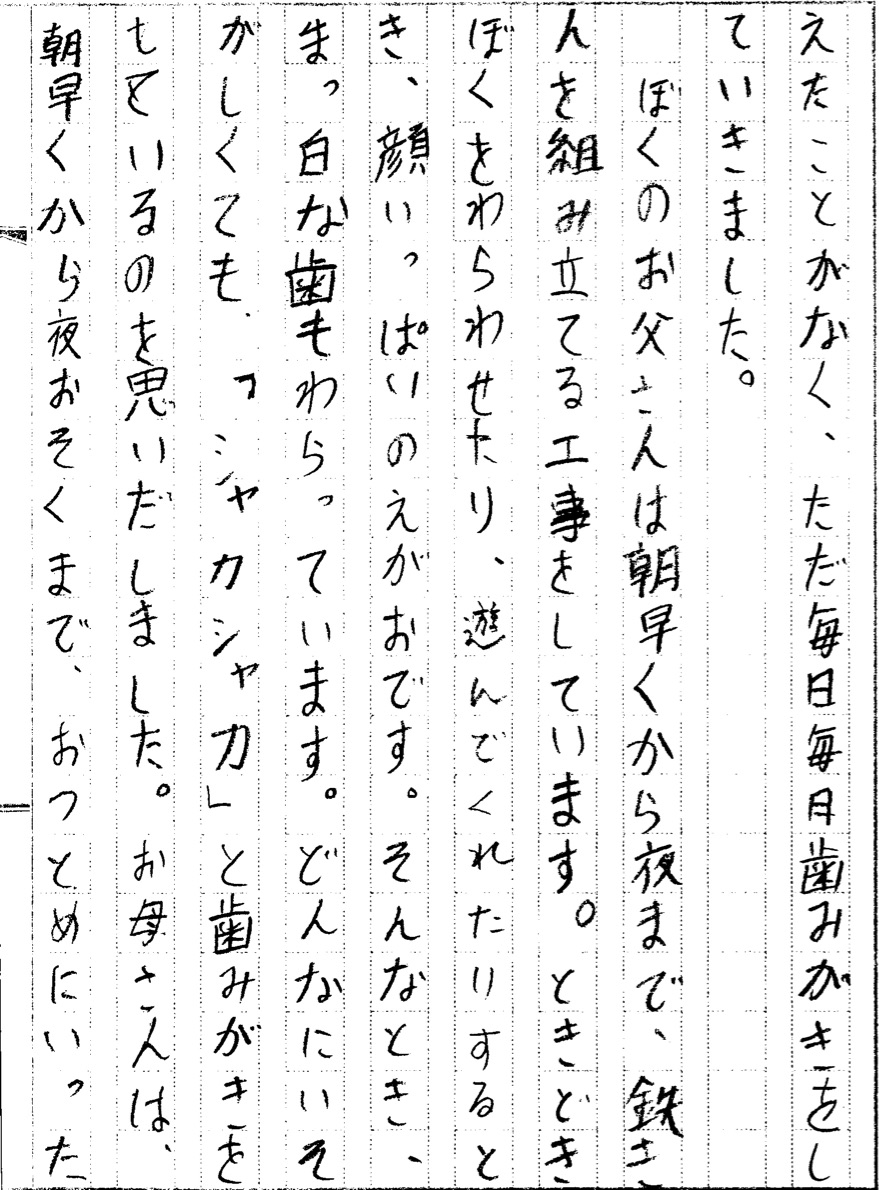 えたことがなく、ただ毎日毎日歯みがきをし
ていきました。
ぼくのお父さんは朝早くから夜まで、鉄き
んを組み立てる工事をしています。ときどき
ぼくをわらわせたり、遊んでくれたりすると
き、顔いっぱいのえがおです。そんなとき、
まっ白な歯もわらっています。どんなにいそ
がしくても、「シャカシャカ」と歯みがきを
しているのを思いだしました。お母さんは、
朝早くから夜おそくまで、おつとめにいった